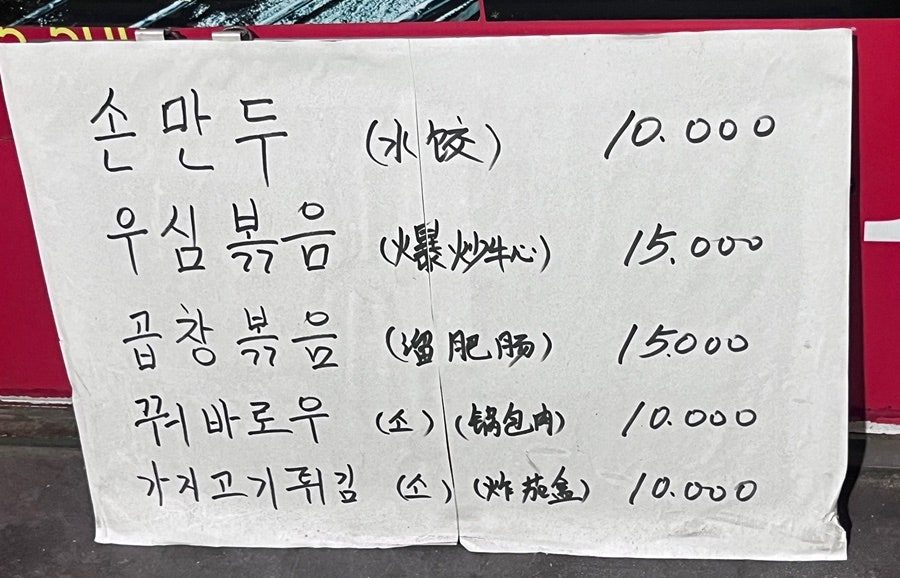 손만두 (水饺) 10.000
우심볶음 (爆炒牛心) 15.000
곱창볶음 (溜肥肠) 15.000
꿔바로우 (소) (锅包肉) 10.000
가지고기튀김 (소) (炸茄盒) 10.000